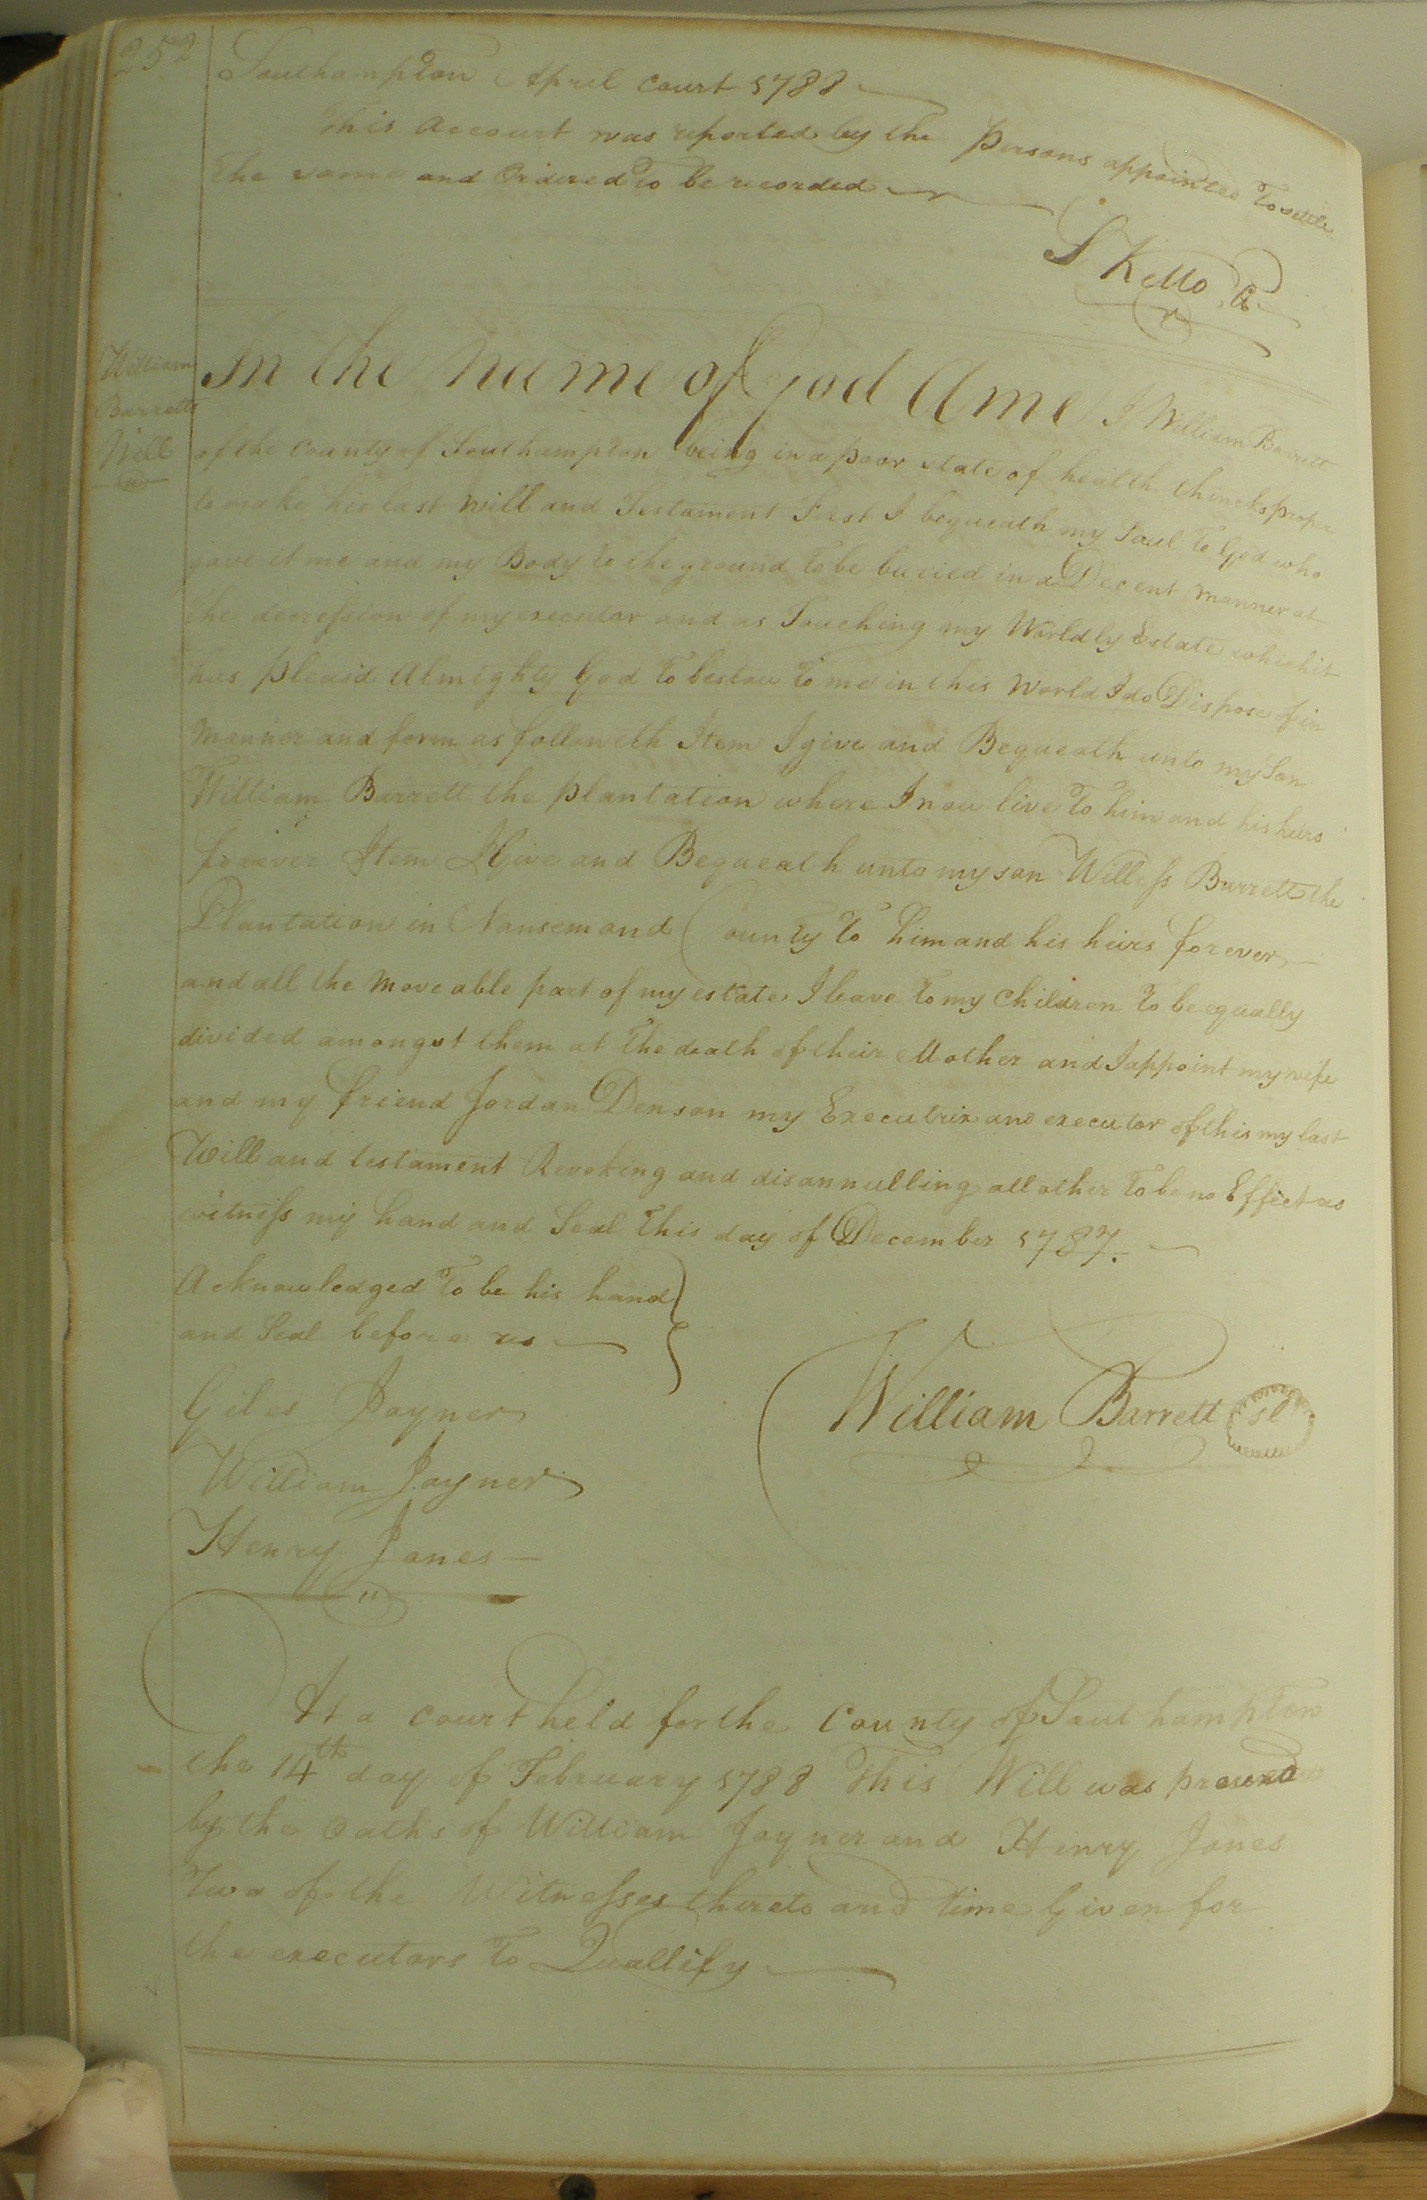 252
Southampton April Court 1788
This Account was reported by the Persons appointed To settle
The same and Ordered To be recorded
S Kello Cl
William
Barretts
Will
In the Name of God Ame I William Barrett
of the County of Southampton being in a poor state of health thincks proper
to make his last will and Testament First I bequeath my Soul To God who
gave it me and my Body To the ground To be buried in a Decent manner at
the decression of my executor and as Touching my Worldly Estate which it
has pleasd Almighty God To bestow To me in this World I do Dispose of in
Manner and form as followeth Item I give and Bequeath unto my Son
William Barrett the plantation where I now live To him and his heirs
forever Item I Give and Bequeath unto my son Willess Barrett the
Plantation in Nansemond County To him and his heirs forever
and all the moveable part of my estate I leave To my Children To be equally
divided amongst them at the death of their Mother and I appoint my wife
and my friend Jordan Denson my Executrix and executor of this my last
Will and testament Revoking and disannulling all other To be no Effect as
witness my hand and Seal this day of December 1787.
Acknowledged To be his hand
and Seal before us
William Barrett sl
Giles Joyner
William Joyner
Henry Jones
At a Court held for the County of Southampton
the 14th day of February 1788 This Will was proved
by the Oaths of William Joyner and Henry Jones
Two of the Witnesses thereto and time Given for
the executors To Quallify